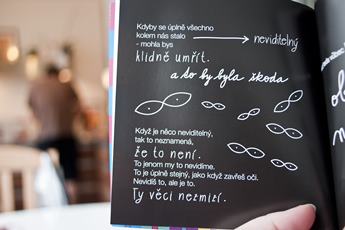 Kdyby se úplně všechno
kolem nás stalo → neviditelný
- mohla bys
klidně umřít.
a to by byla škoda
Když je něco neviditelný,
tak to neznamená,
že to není.
To jenom my to nevidíme.
To je úplně stejný, jako když zavřeš oči.
Nevidíš to, ale je to.
Ty věci nezmizí.